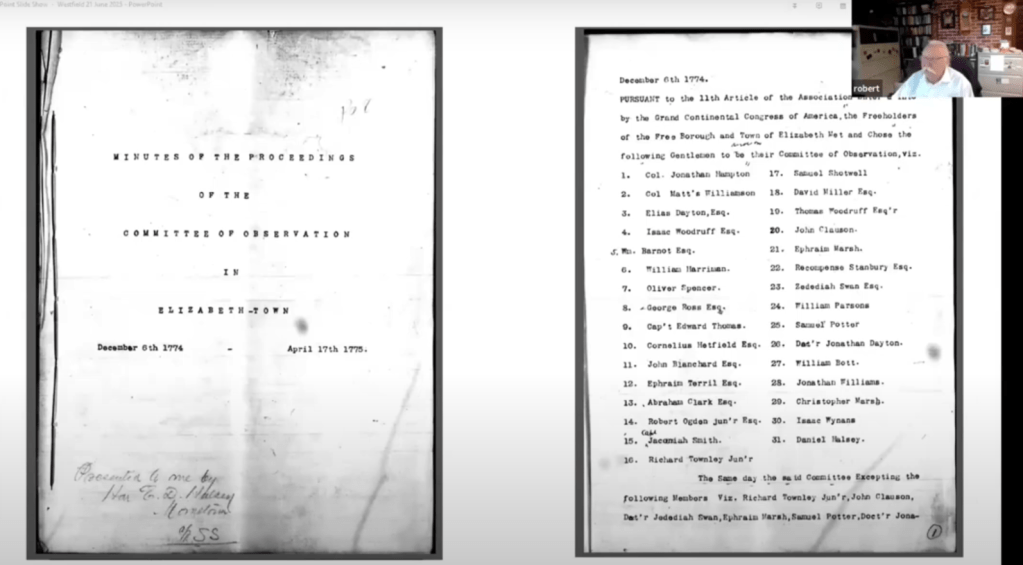 Point Slide Show - Westfield 21 June 2025 - PowerPoint
robert
MINUTES OF THE PROCEEDINGS
OF THE
COMMITTEE OF OBSERVATION
IN
ELIZABETH-TOWN
December 6th 1774 - April 17th 1775.
Presented to me by
Hon E. D. Halsey
Morristown
December 6th 1774.
PURSUANT to the 11th Article of the Association
by the Grand Continental Congress of America, the Freeholders
of the Free Borough and Town of Elizabeth Met and Chose the
following Gentlemen to be their Committee of Observation, viz.
1. Col. Jonathan Hampton 17. Samuel Shotwell
2. Col Matt's Williamson 18. David Miller Esq.
3. Elias Dayton, Esq. 19. Thomas Woodruff Esq'r
4. Isaac Woodruff Esq. 20. John Clauson.
5. Wm. Barnot Esq. 21. Ephraim Marsh.
6. William Harriman. 22. Recompense Stanbury Esq.
7. Oliver Spencer. 23. Zedediah Swan Esq.
8. George Ross Esq. 24. William Parsons
9. Cap't Edward Thomas. 25. Samuel Potter
10. Cornelius Hetfield Esq. 26. Dot'r Jonathan Dayton.
11. John Blanchard Esq. 27. William Bott.
12. Ephraim Terril Esq. 28. Jonathan Williams.
13. Abraham Clark Esq. 29. Christopher Marsh.
14. Robert Ogden jun'r Esq. 30. Isaac Wynans
15. Jacomiah Smith. 31. Daniel Halsey.
16. Richard Townley Jun'r
The Same day the said Committee Excepting the
following Members Viz. Richard Townley Jun'r, John Clauson,
Dat'r Jedediah Swan, Ephraim Marsh, Samuel Potter, Doct'r Jona-
1